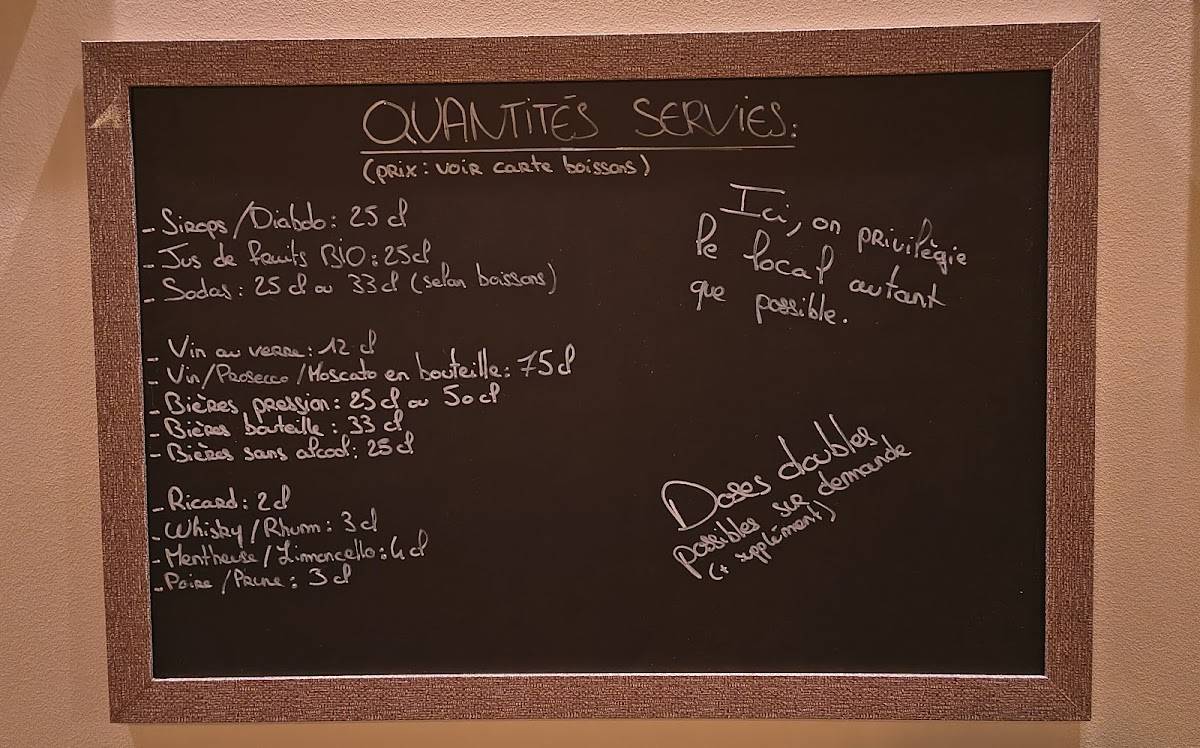 QUANTITÉS SERVIES:
(prix: voir carte boissons)
- Sirops/Diabolo: 25 cl
- Jus de fruits BIO: 25cl
- Sodas: 25 cl ou 33 cl (selon boissons)
- Vin au verre: 12 cl
- Vin/Prosecco/Moscato en bouteille: 75 cl
- Bières pression: 25 cl ou 50 cl
- Bières bouteille: 33 cl
- Bières sans alcool: 25 cl
- Ricard: 2 cl
- Whisky/Rhum: 3 cl
- Mentheuse/Limoncello: 4 cl
- Poire/Prune: 3 cl
Ici, on privilégie
le local autant
que possible.
Doses doubles
possibles sur demande
(+ supplément)